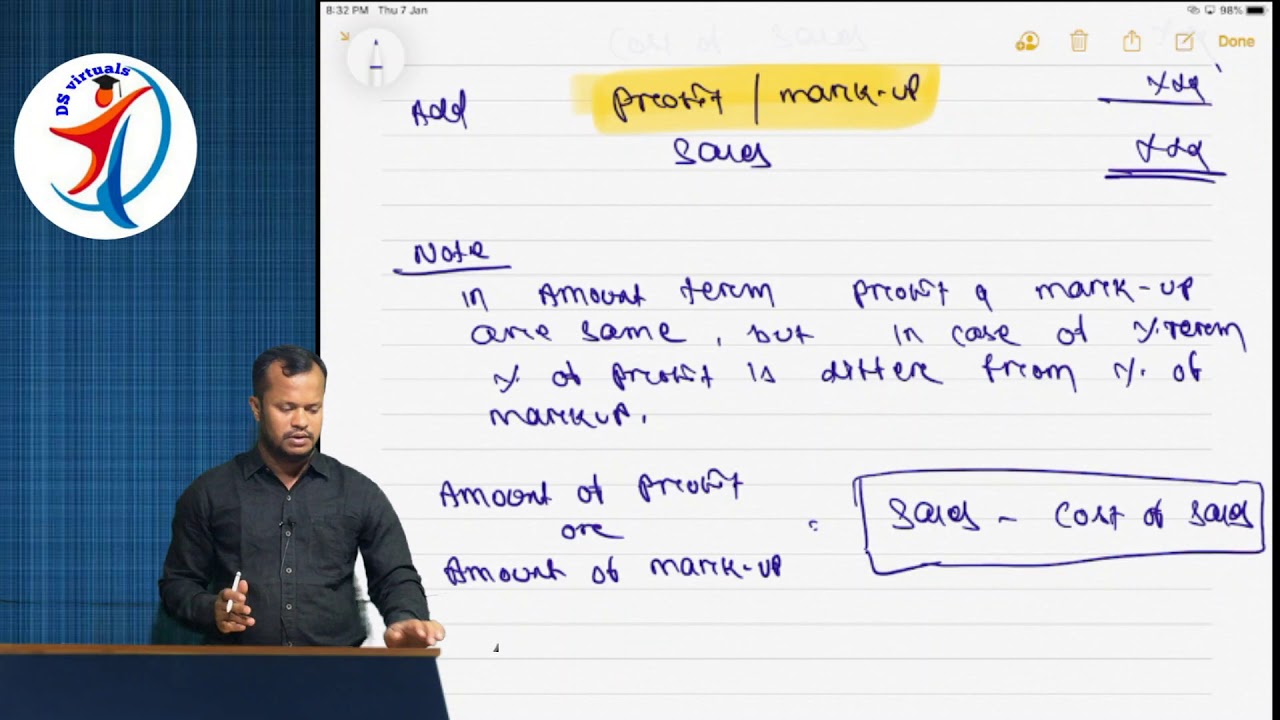 8:32 PM Thu 7 Jan
98%
Cost of Sales
Done
DS virtuals
Add profit / mark-up xxx
Sales xxx
Note
in Amount term profit & mark-up
are same, but in case of % term
% of profit is differe from % of
markup.
Amount of profit
or
Amount of mark-up
= Sales - Cost of Sales